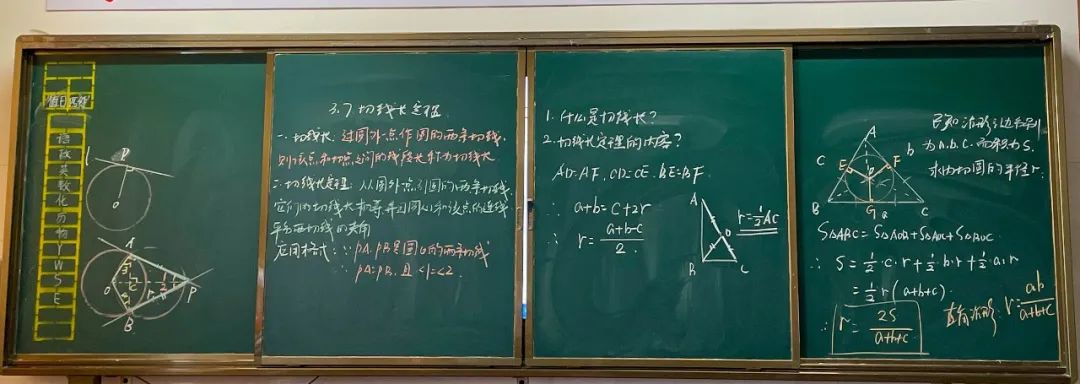 值日
语
政
英
数
化
历
物
Y
W
S
E
l
O
A
O
P
B
3.7 切线长定理
一、切线长: 过圆外一点作圆的两条切线,
则该点和切点之间的线段长称为切线长
二、切线长定理: 从圆外一点引圆的两条切线,
它们的切线长相等,并且圆心和该点的连线
平分两切线的夹角
应用格式: ∵ PA、PB是圆O的两条切线
∴ PA=PB, 且 <1=<2.
1. 什么是切线长?
2. 切线长定理的内容?
AD=AF, CD=CE, BE=BF
∴ a+b=c+2r
∴ r=\frac{a+b-c}{2}
A
O
B
C
r=\frac{1}{2}AC
A
C
b
E
F
O
B
G
a
C
已知△ABC三边分别
为a、b、c, 面积为S,
求内切圆的半径r.
S△ABC=S△AOB+S△AOC+S△BOC
∴ S=\frac{1}{2}·c·r+\frac{1}{2}·b·r+\frac{1}{2}a·r
=\frac{1}{2}r(a+b+c).
∴ r=\frac{2S}{a+b+c}
直角三角形: r=\frac{ab}{a+b+c}